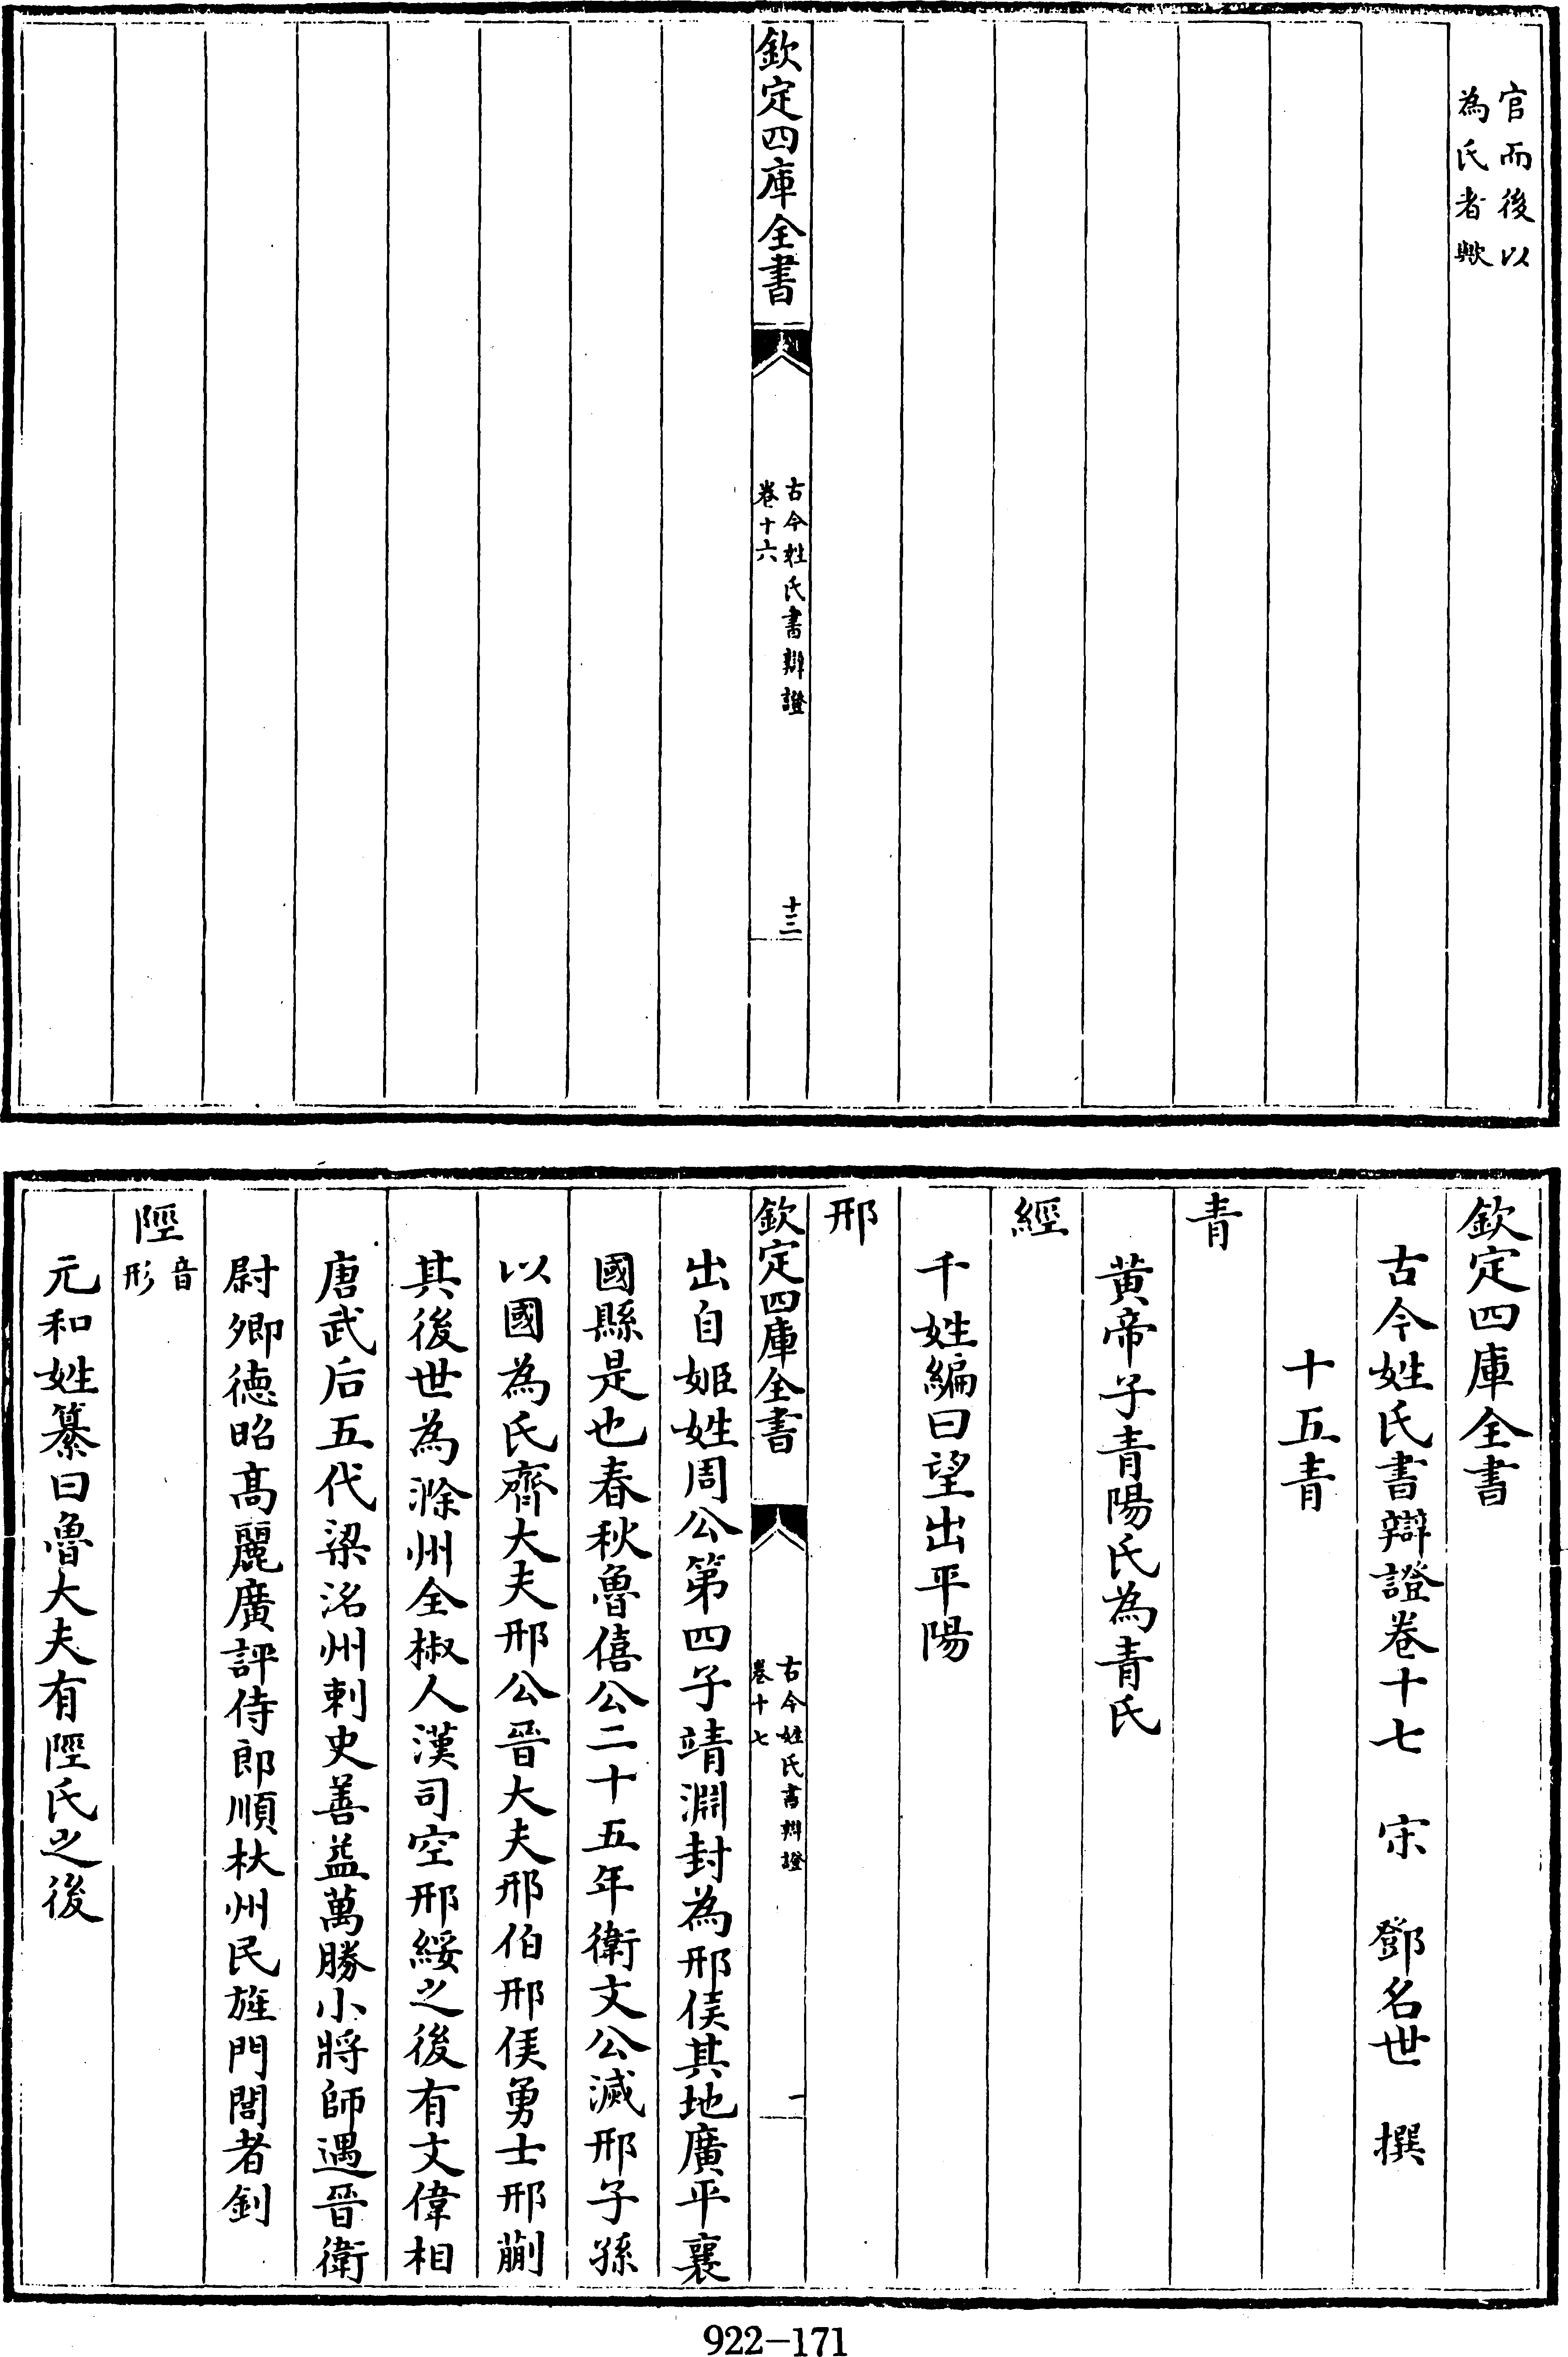 官而後以
為氏者歟
欽定四庫全書
古今姓氏書辯證
卷十六
十三
欽定四庫全書
古今姓氏書辯證卷十七 宋 鄧名世 撰
十五青
青
黄帝子青陽氏為青氏
經
千姓編曰望出平陽
邢
欽定四庫全書
古今姓氏書辯證
卷十七
一
出自姬姓周公第四子靖淵封為邢侯其地廣平襄
國縣是也春秋魯僖公二十五年衛文公滅邢子孫
以國為氏齊大夫邢公晉大夫邢伯邢侯勇士邢蒯
其後世為滁州全椒人漢司空邢綏之後有文偉相
唐武后五代梁洺州刺史善益萬勝小將師遇晉衛
尉卿德昭髙麗廣評侍郎順杕州民旌門閭者釗
陘音形
元和姓纂曰魯大夫有陘氏之後
922-171